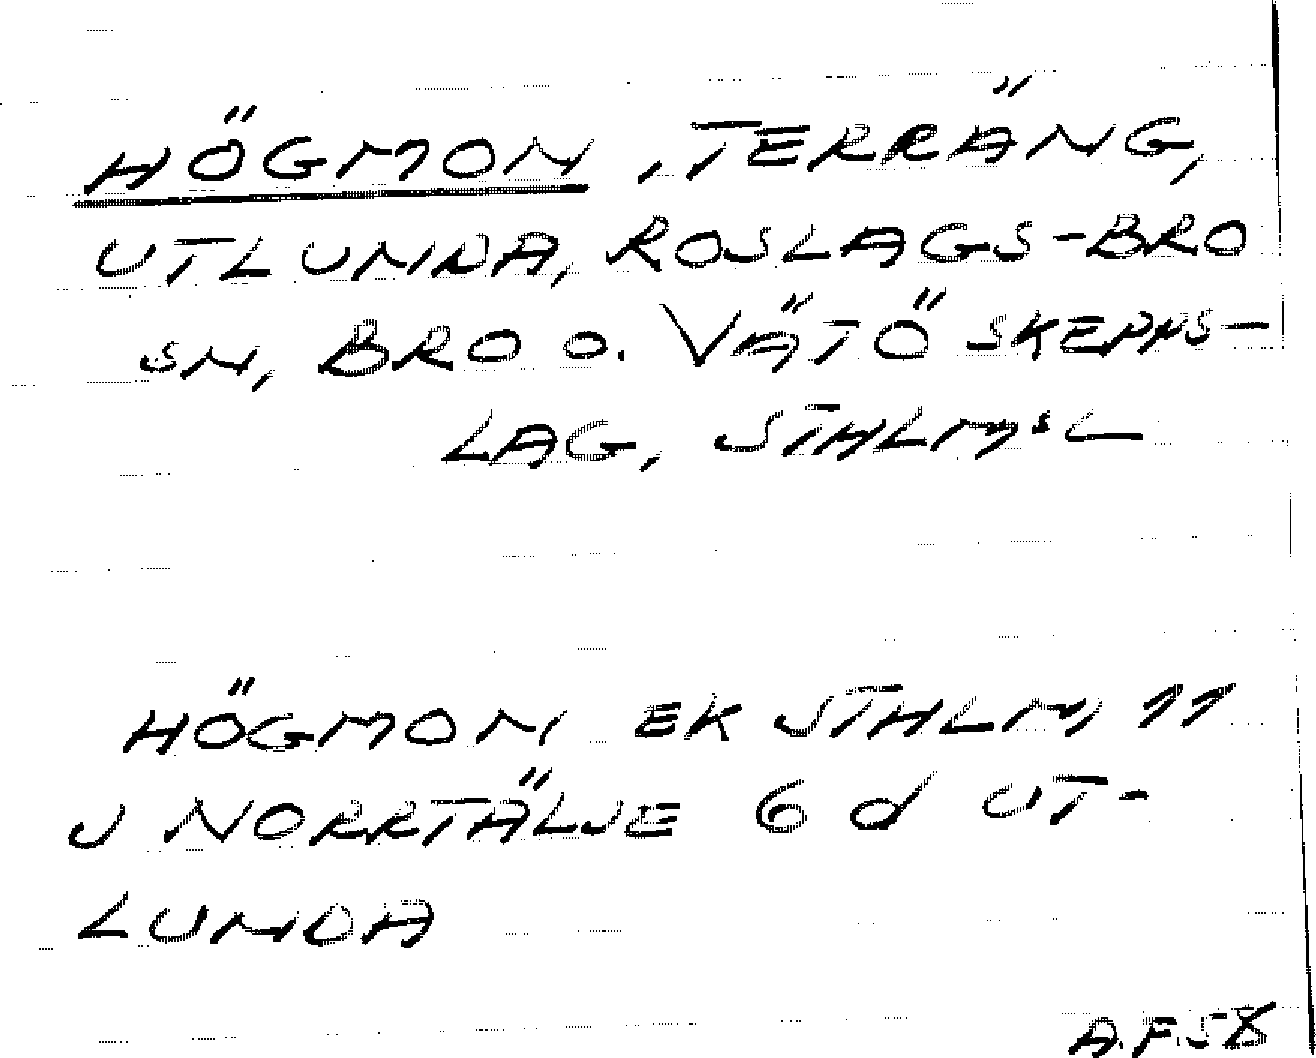 HÖGMON, TERRÄNG,
UTLUNDA, ROSLAGS-BRO
SN, BRO O. VÄTÖ SKEPPS-
LAG, STHLMS L
HÖGMON EK STHLM 11
J NORRTÄLJE 6 d UT-
LUNDA
A.F. 58